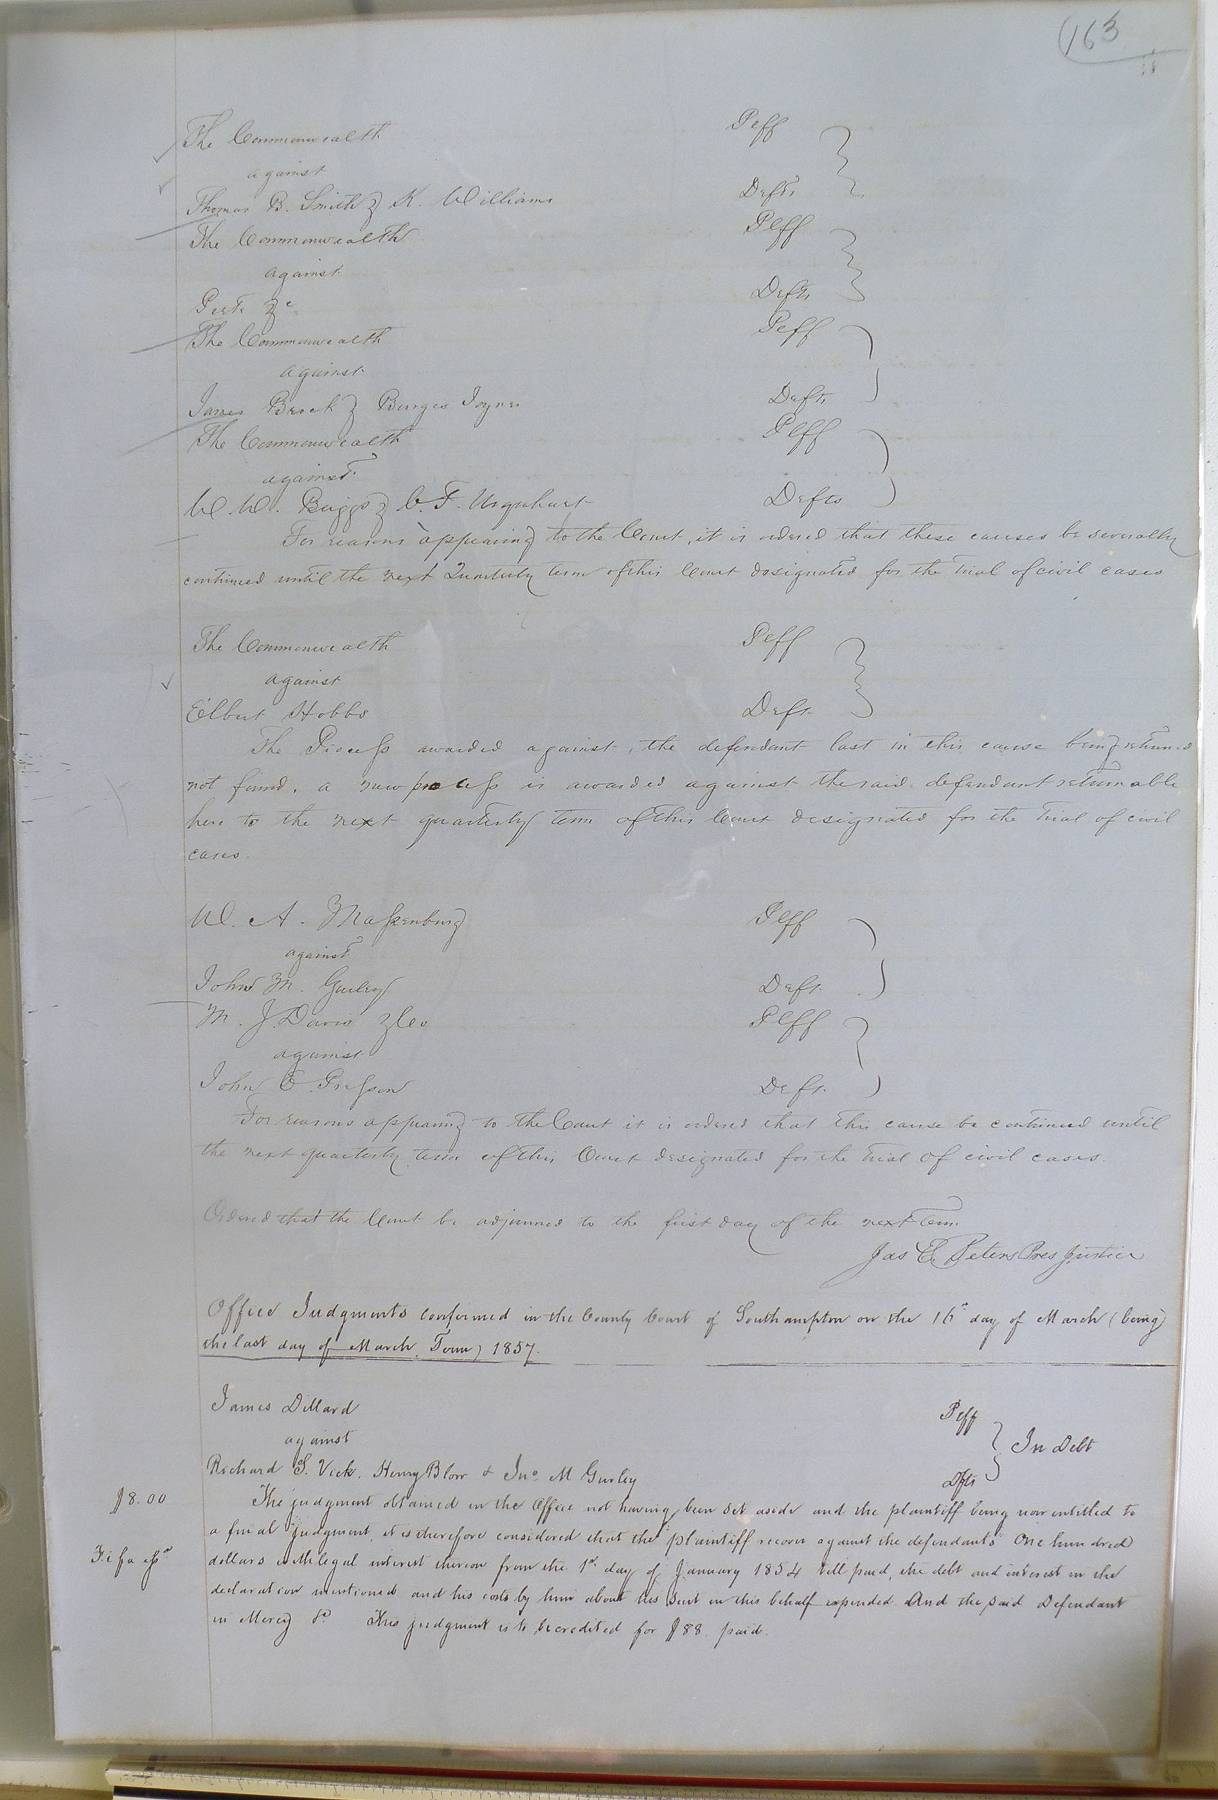 163
The Commonwealth Plff
against
Thomas B. Smith & K. Williams Defts
The Commonwealth Plff
against
Same &c Defts
The Commonwealth Plff
against
James Brock & Burges Joyner Defts
The Commonwealth Plff
against
W. W. Briggs & C. F. Urquhart Defts
For reasons appearing to the Court, it is ordered that these causes be severally
continued until the next Quarterly term of this Court designated for the trial of civil cases
The Commonwealth Plff
against
Elbert Hobbs Deft
The Process awarded against the defendant last in this cause being returned
not found, a new process is awarded against the said defendant returnable
here to the next quarterly term of this Court designated for the trial of civil
cases.
W. A. Massenburg Plff
against
John M. Gurley Deft
M. J. Davis & Co Plff
against
John E. Gresson Deft
For reasons appearing to the Court it is ordered that this cause be continued until
the next quarterly term of this Court designated for the trial of civil cases.
Ordered that the Court be adjourned to the first day of the next term.
Jas E. Peters Pres Justice
Office Judgments confirmed in the County Court of Southampton on the 16th day of March (being
the last day of March Term) 1857.
James Dillard Plff
against In Debt
Richard S. Vick, Henry Blow & Jno M Gurley Dfts
$8.00 The judgment obtained in the Office not having been set aside and the plaintiff being now entitled to
a final judgment, it is therefore considered that the plaintiff recover against the defendants One hundred
Fi fa
dollars with legal interest thereon from the 1st day of January 1854 till paid, the debt and interest in the
declaration mentioned and his costs by him about his suit in this behalf expended. And the said Defendant
in Mercy &c This judgment is to be credited for $88. paid.